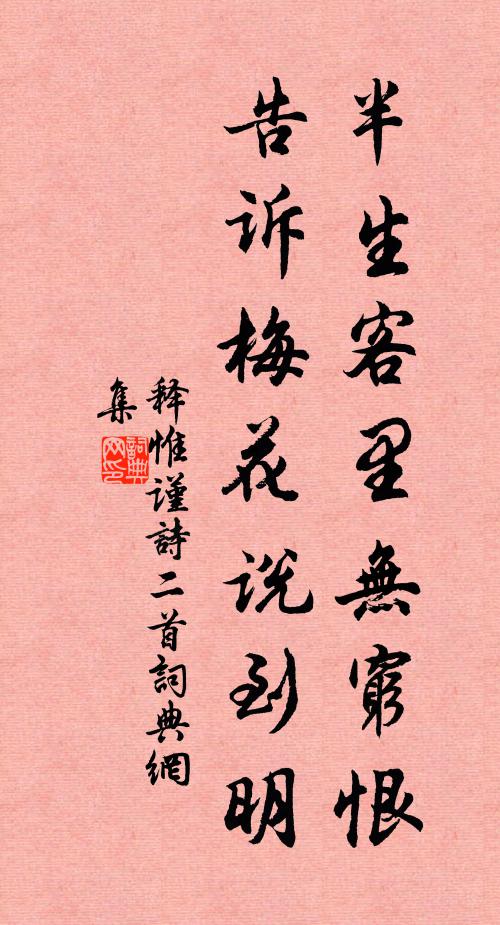 半生客里無窮恨
告诉梅花説到明
释惟謹詩二首詞典網
集
詞典網印